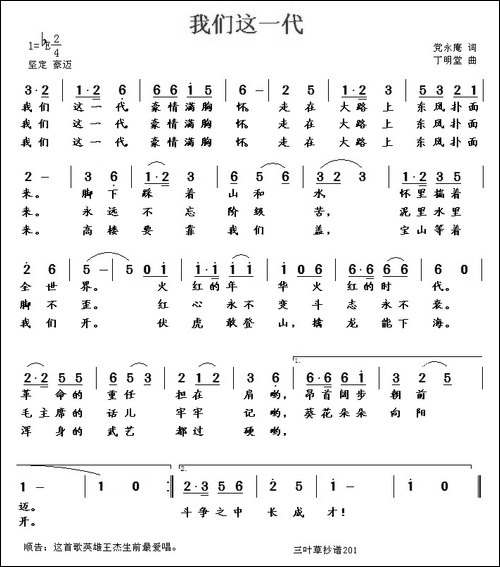 我们这一代
1=♭E 2/4
党永庵 词
坚定 豪迈
丁明堂 曲
3·2 1·2 6 6 6 i 5 6 - 2 5 1·2 6 5 5 3 5
我们 这一代 豪情满胸怀, 走在 大路上 东风扑面
我们 这一代 豪情满胸怀, 走在 大路上 东风扑面
我们 这一代 豪情满胸怀, 走在 大路上 东风扑面
2 - 3 6 1·2 3 5 6 3 2 3 1·2 1 2
来。 脚下 踩着 山和水, 怀里揣着
来。 永远 不忘 阶级苦, 泥里水里
来。 高楼 要靠 我们盖, 宝山等着
2 6 5 - 5 0 1 1·1 1 1 6 1 6·6 6 6 6 2
全世界。 火红的年华火红的时代。
脚不歪。 红心永不变斗志永不衰。
我们开。 伏虎敢登山,擒龙能下海。
2·2 5 5 6 5 3 2 1 2 3 - 6·6 6 1 3 2 5
革命的重任担在肩哟, 昂首阔步朝前
毛主席的话儿牢牢记哟, 葵花朵朵向阳
浑身的武艺都过硬哟,
1 - 1 0 2·3 5 6 6 2 1 - 1 0
迈。 斗争之中长成才!
开。
顺告:这首歌英雄王杰生前最爱唱。
三叶草抄谱201